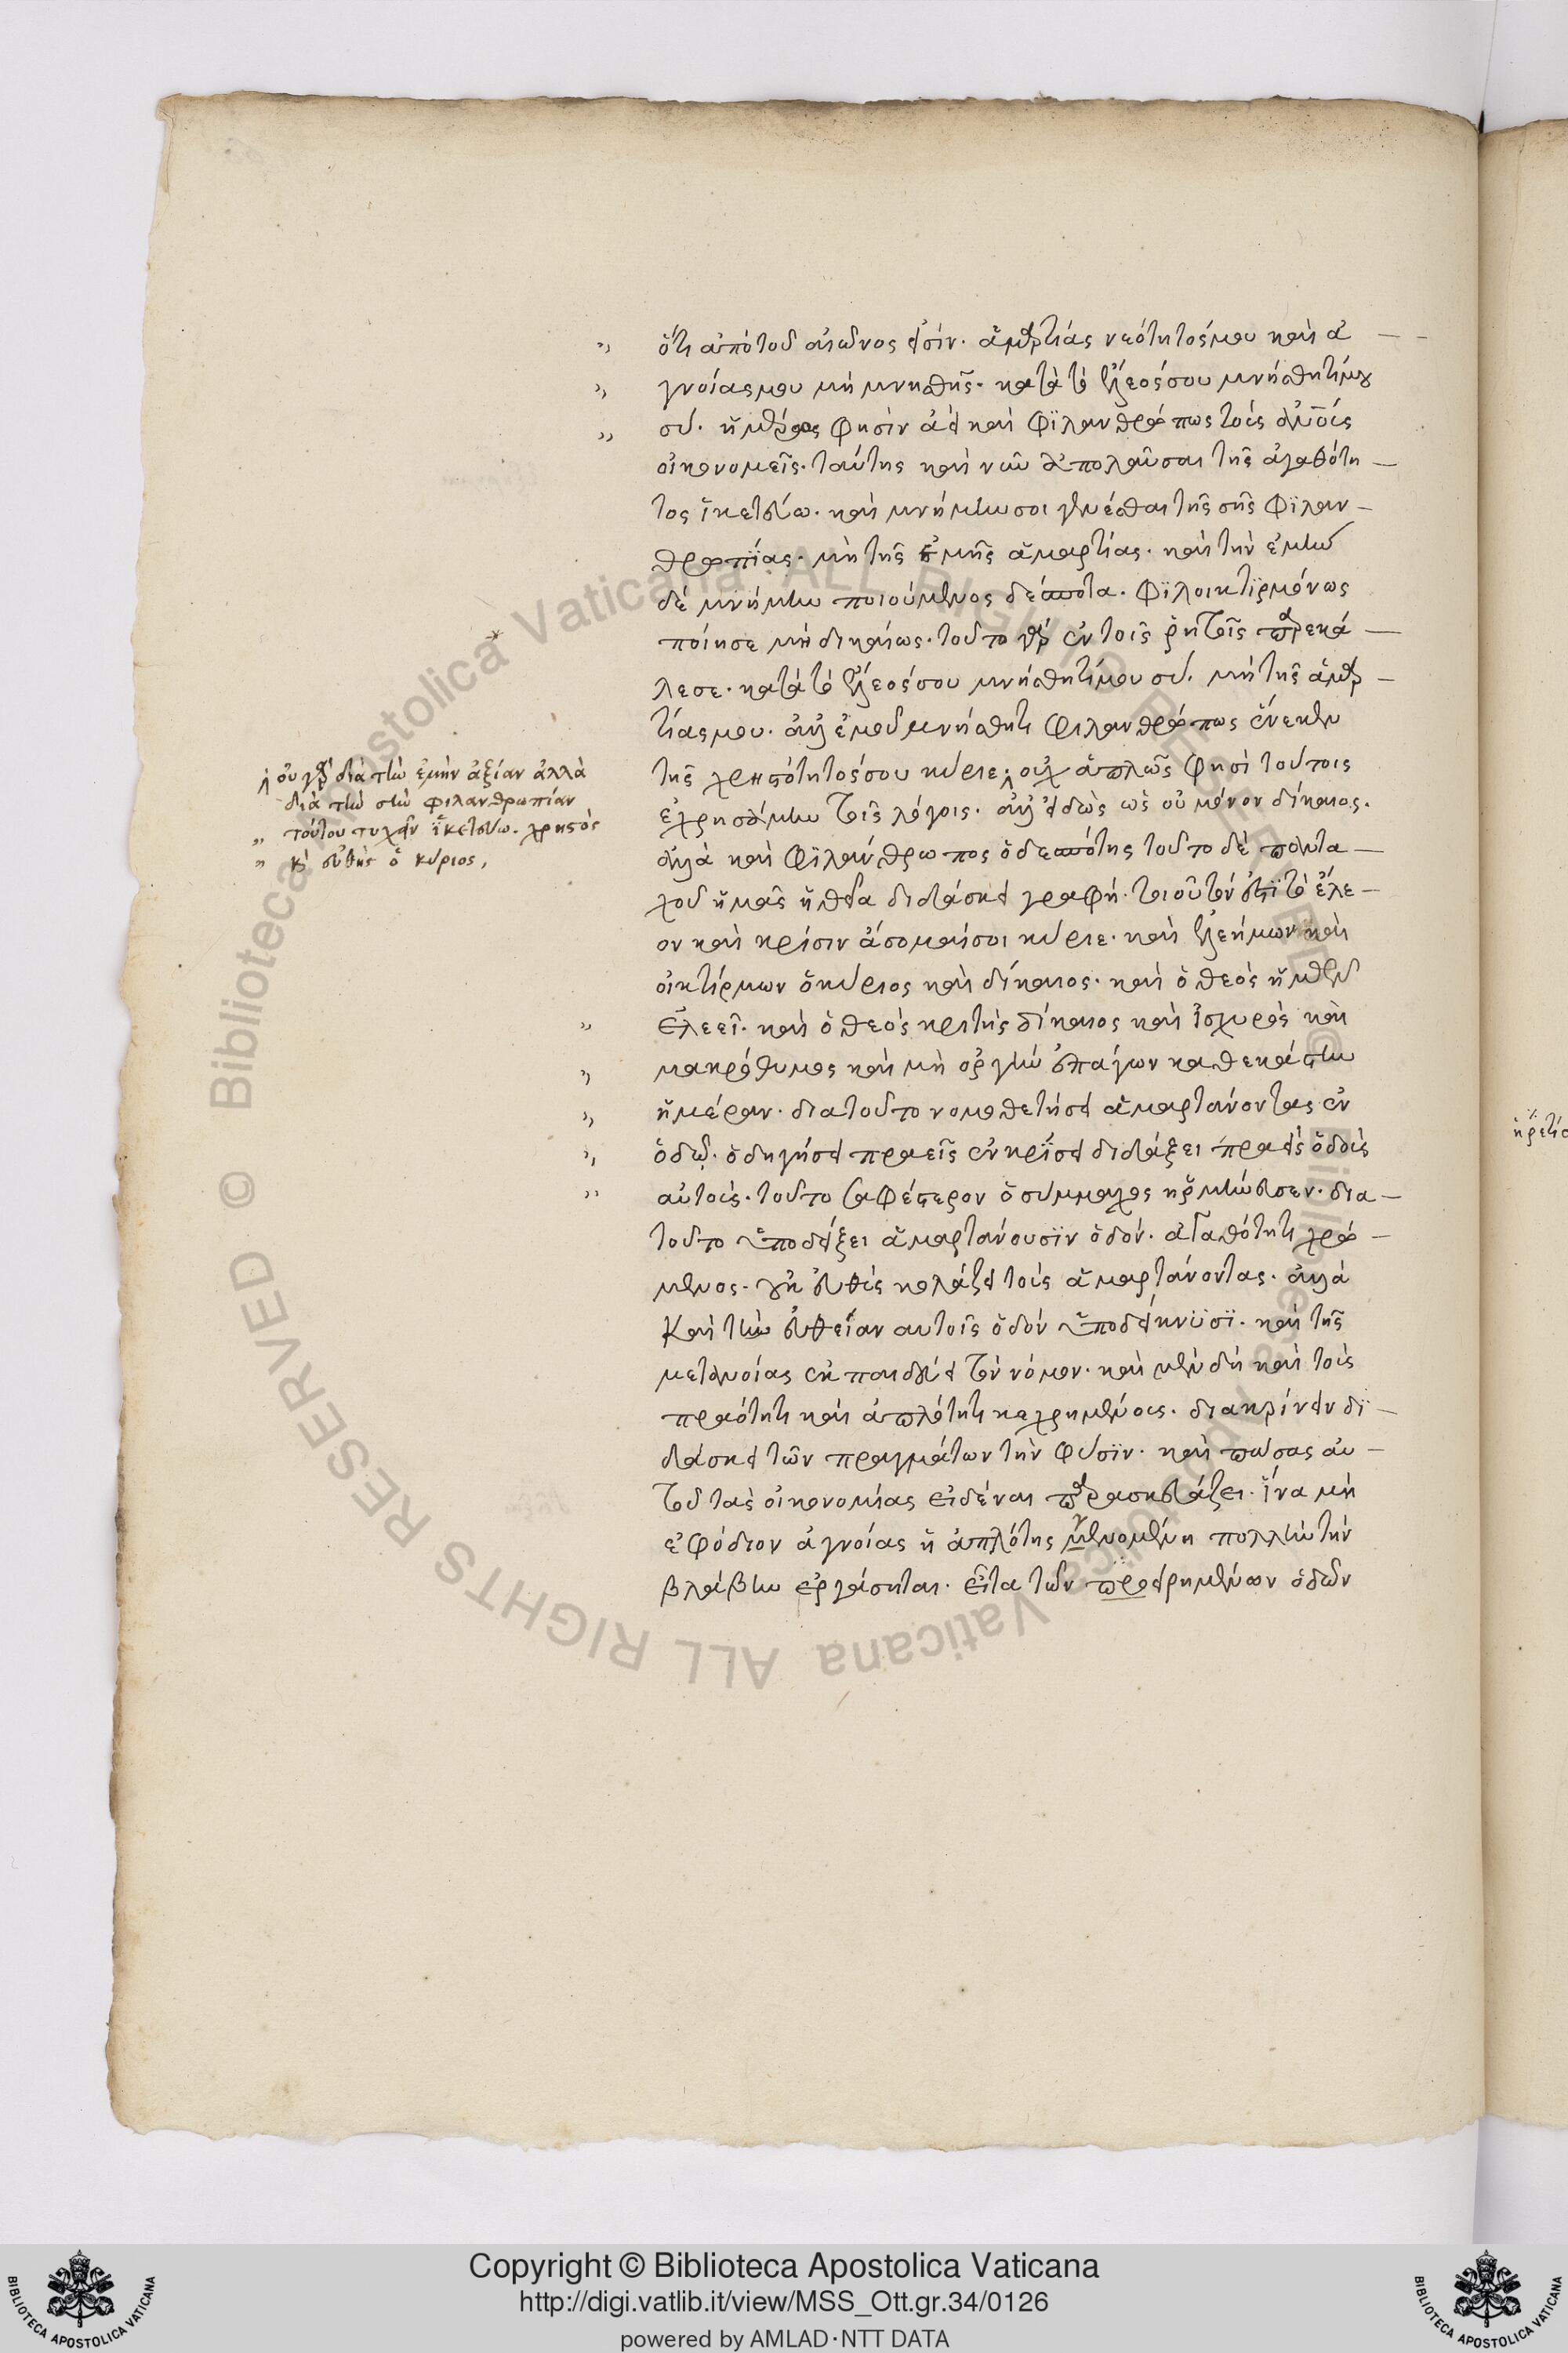 ὅτι ἀπὸ τοῦ αἰῶνος εἰσίν. ἁμαρτίας νεότητός μου καὶ ἀ
γνοίας μου μὴ μνησθῆς. κατὰ τὸ ἔλεός σου μνήσθητί μου
σύ. ἡμέρως φησὶν ἀεὶ καὶ φιλανθρώπως τοὺς ἀνους
οἰκονομεῖς. ταύτης καὶ νῦν ἀπολαῦσαι τῆς ἀγαθότη
τος ἱκετεύω. καὶ μνήμην σοι γενέσθαι τῆς σῆς φιλαν
θρωπίας. μὴ τῆς ἐμῆς ἁμαρτίας. καὶ τὴν ἐμὴν
δὲ μνήμην ποιούμενος δέσποτα. φιλοικτιρμόνως
ποίησε μὴ δικαίως. τοῦτο γὰρ ἐν τοῖς ῥητοῖς παρεκά
λεσε. κατὰ τὸ ἔλεός σου μνήσθητί μου σύ. μὴ τῆς ἁμαρ
τίας μου. ἀλλ' ἐμοῦ μνήσθητι φιλανθρώπως ἕνεκεν
τῆς χρηστότητός σου κύριε. οὐχ ἁπλῶς φησὶ τούτοις
ἐχρησάμην τοῖς λόγοις. ἀλλ' εἰδὼς ὡς οὐ μόνον δίκαιος.
ἀλλὰ καὶ φιλάνθρωπος ὁ δεσπότης τοῦτο δὲ παντα
χοῦ ἡμᾶς ἡ θεία διδάσκει γραφή. τοιοῦτόν ἐστι τὸ ἔλε
ον καὶ κρίσιν ἄσομαί σοι κύριε. καὶ ἐλεήμων καὶ
οἰκτίρμων ὁ κύριος καὶ δίκαιος. καὶ ὁ θεὸς ἡμῶν
ἐλεεῖ. καὶ ὁ θεὸς κριτὴς δίκαιος καὶ ἰσχυρὸς καὶ
μακρόθυμος καὶ μὴ ὀργὴν ἐπάγων καθ' ἑκάστην
ἡμέραν. διατοῦτο νομοθετήσει ἁμαρτάνοντας ἐν
ὁδῷ. ὁδηγήσει πραεῖς ἐν κρίσει διδάξει πραεῖς ὁδοὺς
αὐτούς. τοῦτο σαφέστερον ὁ σύμμαχος ἡρμήνευσεν. δια
τοῦτο ὑποδείξει ἁμαρτάνουσιν ὁδόν. ἀγαθότητι χρώ
μενος. οὐκ εὐθὺς κολάζει τοὺς ἁμαρτάνοντας. ἀλλὰ
καὶ τὴν εὐθεῖαν αυτοῖς ὁδὸν ὑποδείκνυσι. καὶ τῆς
μετανοίας ἐκπαιδεύει τὸν νόμον. καὶ μὲν δὴ καὶ τοὺς
πραότητι καὶ ἁπλότητι κεχρημένους. διακρίνειν δι
δάσκει τῶν πραγμάτων τὴν φύσιν. καὶ πάσας αὐ
τοῦ τὰς οἰκονομίας εἰδέναι παρασκευάζει. ἵνα μὴ
ἐφόδιον ἀγνοίας ἡ ἁπλότης γενομένη πολλὴν τὴν
βλάβην ἐργάσηται. εἶτα τῶν προειρημένων ὁδῶν
οὐ γὰρ διὰ τὴν ἐμὴν ἀξίαν ἀλλὰ
διὰ τὴν σὴν φιλανθρωπίαν
τούτου τυχεῖν ἱκετεύω. χρηστὸς
κ εὐθὴς ὁ κύριος,
Copyright © Biblioteca Apostolica Vaticana
http://digi.vatlib.it/view/MSS_Ott.gr.34/0126
powered by AMLAD·NTT DATA
BIBLIOTECA APOSTOLICA VATICANA
BIBLIOTECA APOSTOLICA VATICANA
Biblioteca Apostolica Vaticana ALL RIGHTS RESERVED © Biblioteca Apostolica Vaticana ALL RIGHTS RESERVED ©